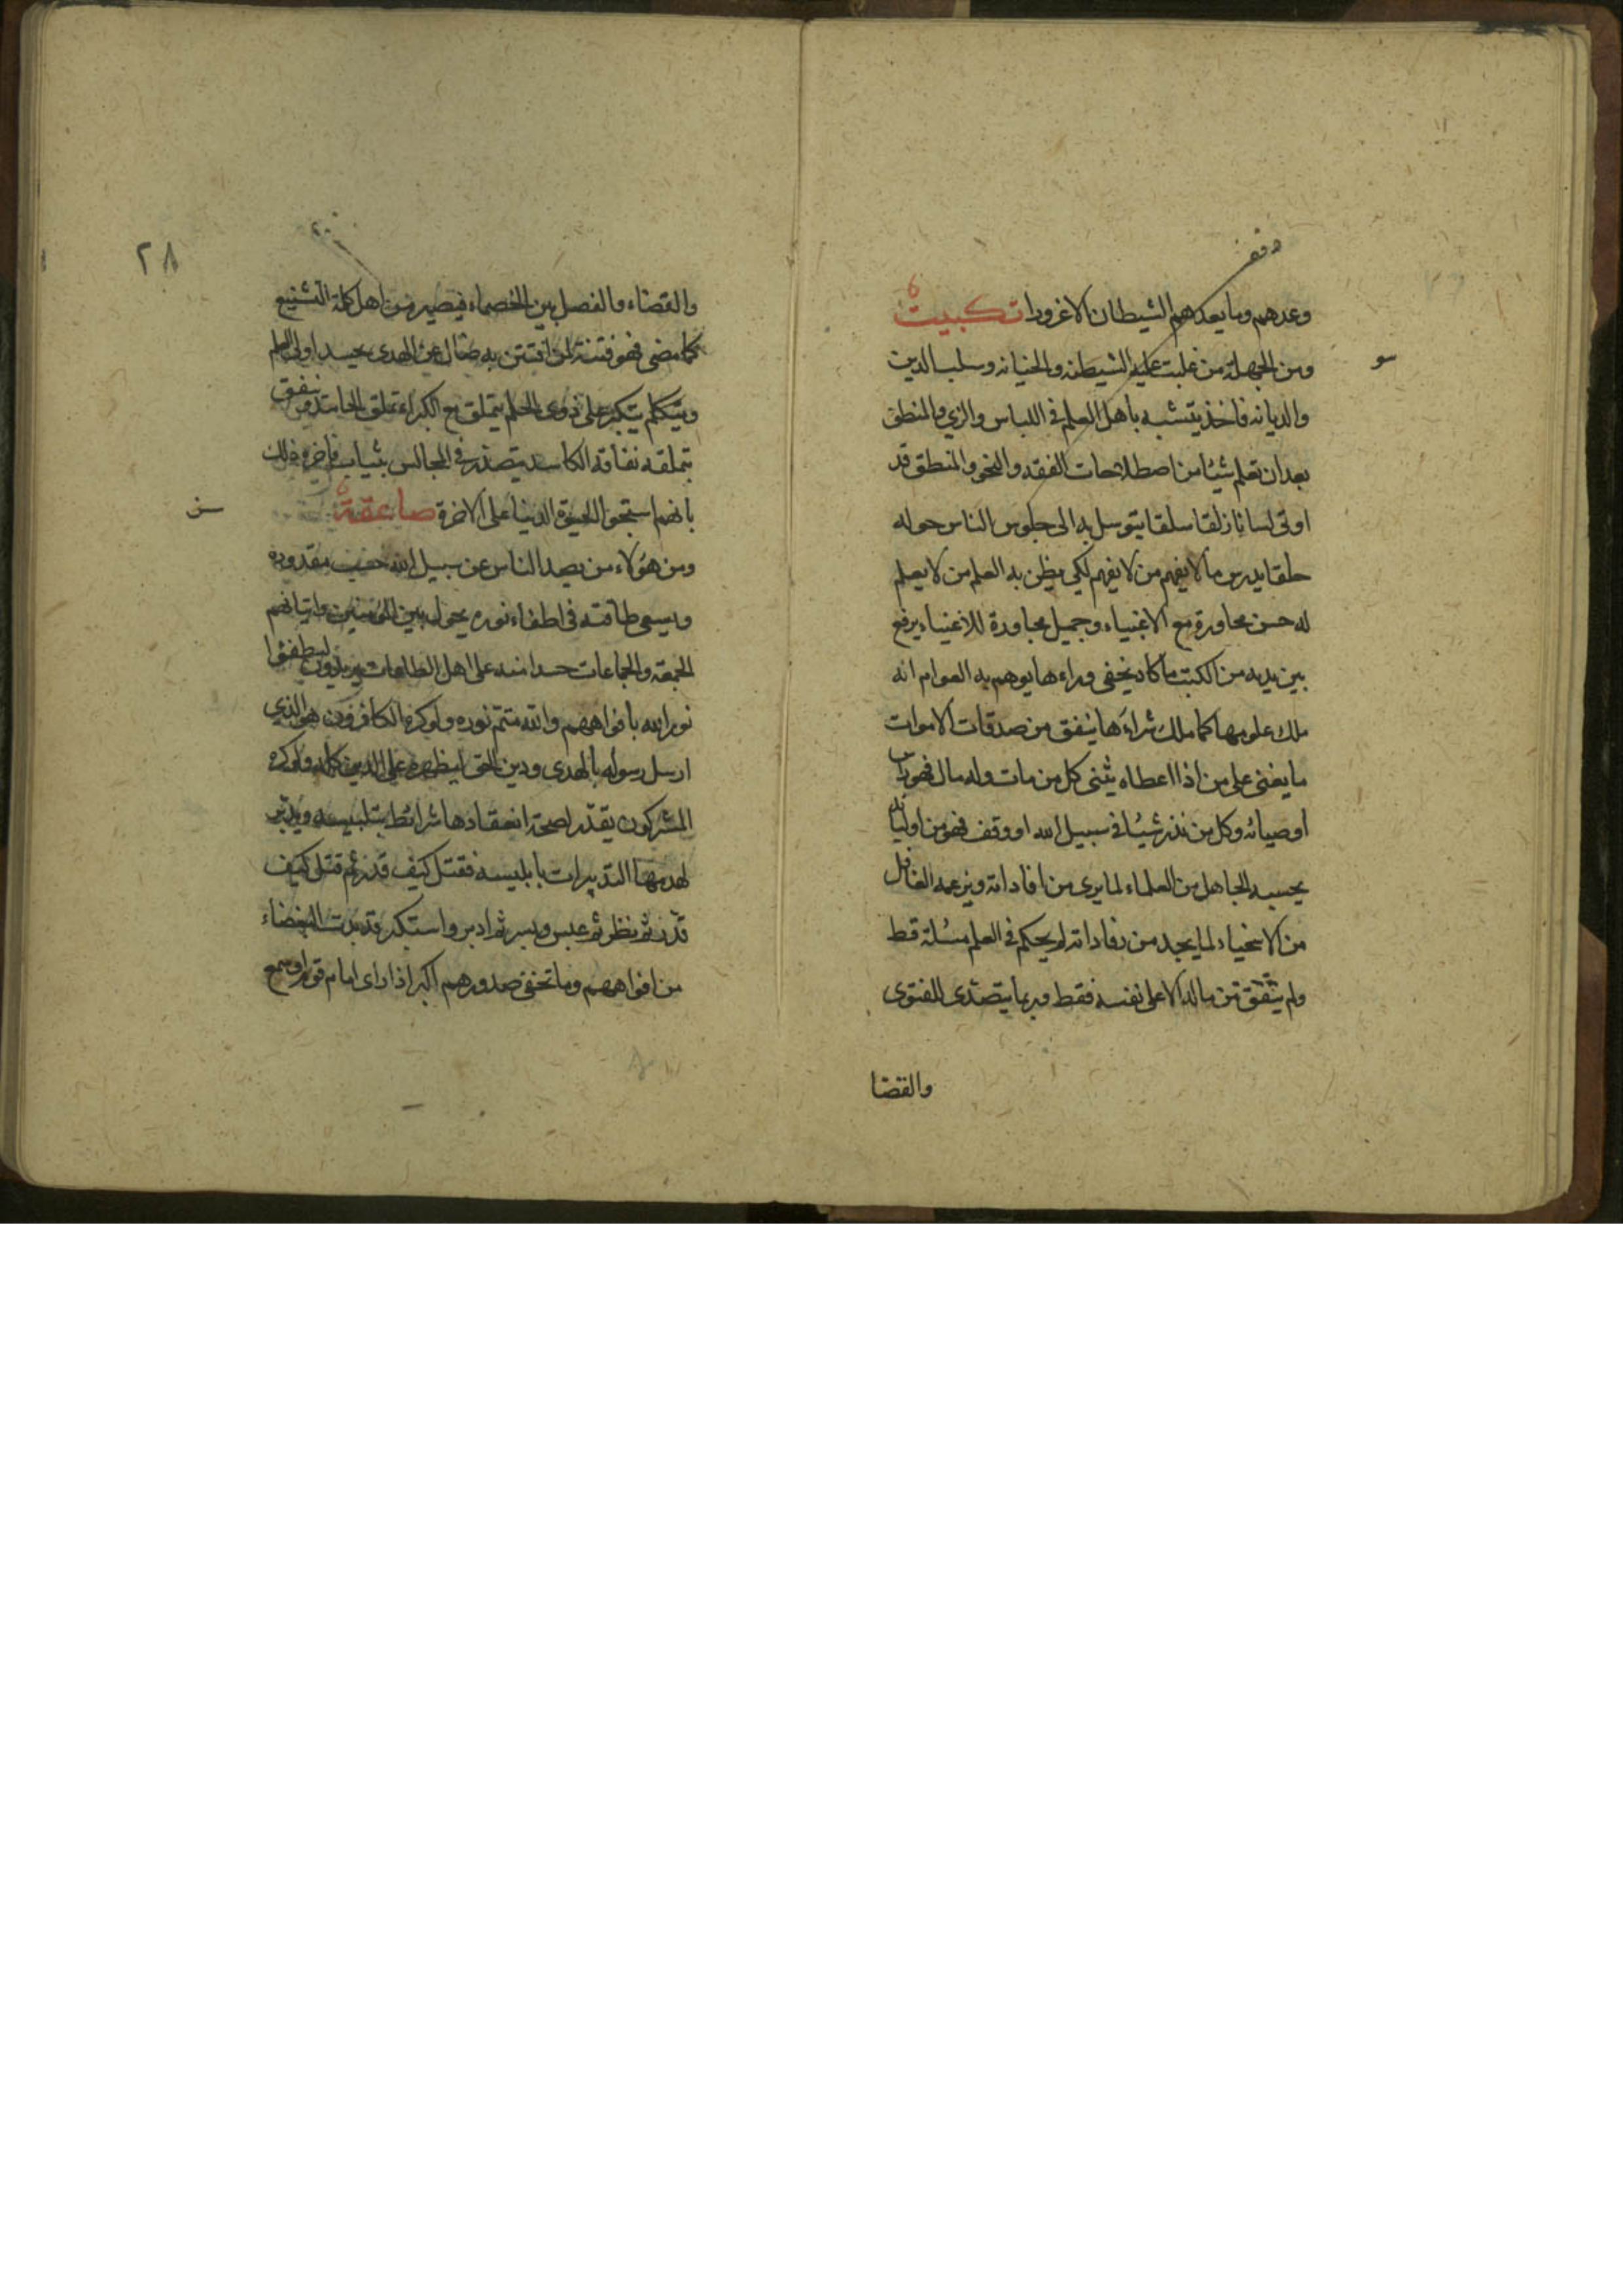 وقف
وعدهم وما يعدهم الشيطان الا غرورا تكبيت
سو
ومن الجهلة من غلبت عليه الشيطنه والخيانه وسلب الدين
والديانه فاخذ يتشبه باهل العلم في اللباس والزي والمنطق
بعد ان تعلم شيئا من اصطلاحات الفقه والنحو والمنطق قد
اوتي لسانا زلقا سلقا يتوسل به الى جلوس الناس حوله
حلقا يدرس ما لا يفهم من لا يفهم لكي يظن به العلم من لا يعلم
له حسن محاورة مع الاغبياء وجميل مجاورة للاغنياء يرفع
بين يديه من الكتب ما كاد يخفى وراءها يوهم به العوام انه
ملك علومها كما ملك شراءها ينفق من صدقات الاموات
ما يغني على من اذا اعطاه يثني كل من مات وله مال فهو من
اوصيائه وكل من نذر شيئا في سبيل الله او وقف فهو من اوليائه
يحسبه الجاهل من العلماء لما يرى من افاداته ويزعمه الغافل
من الاسخياء لما يجد من رفاداته لم يحكم في العلم مسئلة قط
ولم ينفق من ماله الا على نفسه فقط وربما يتصدى للفتوى
والقضا
٢٨
والقضاء والفصل بين الخصماء فيصير من اهل كلمة التشنيع
كما مضى فهو فتنة لمن افتتن به ضال عن الهدى يحسد اولي العلم
ويتكلم يتكبر على ذوي الحلم يتملق مع الكبراء تملق الحاسد وينفق
بتملقه نفاقه الكاسد يتصدر في المجالس بثياب فاخره ذلك
بانهم استحبوا الحيوة الدنيا على الاخرة صاعقة
سن
ومن هؤلاء من يصد الناس عن سبيل الله حسب مقدوره
ويسعى طاقته في اطفاء نوره يحول بين المؤمنين واتيانهم
الجمعة والجماعات حسدا منه على اهل الطاعات يريدون ليطفئوا
نور الله بافواههم والله متم نوره ولو كره الكافرون هو الذي
ارسل رسوله بالهدى ودين الحق ليظهره على الدين كله ولو كره
المشركون يقدر لصحة انعقادها شرائط بتلبيسه ويدبر
لهدمها التدبيرات بابليسه فقتل كيف قدر ثم قتل كيف
قدر ثم نظر ثم عبس وبسر ثم ادبر واستكبر قد بدت البغضاء
من افواههم وما تخفي صدورهم اكبر اذا راى امام قوم او سمع